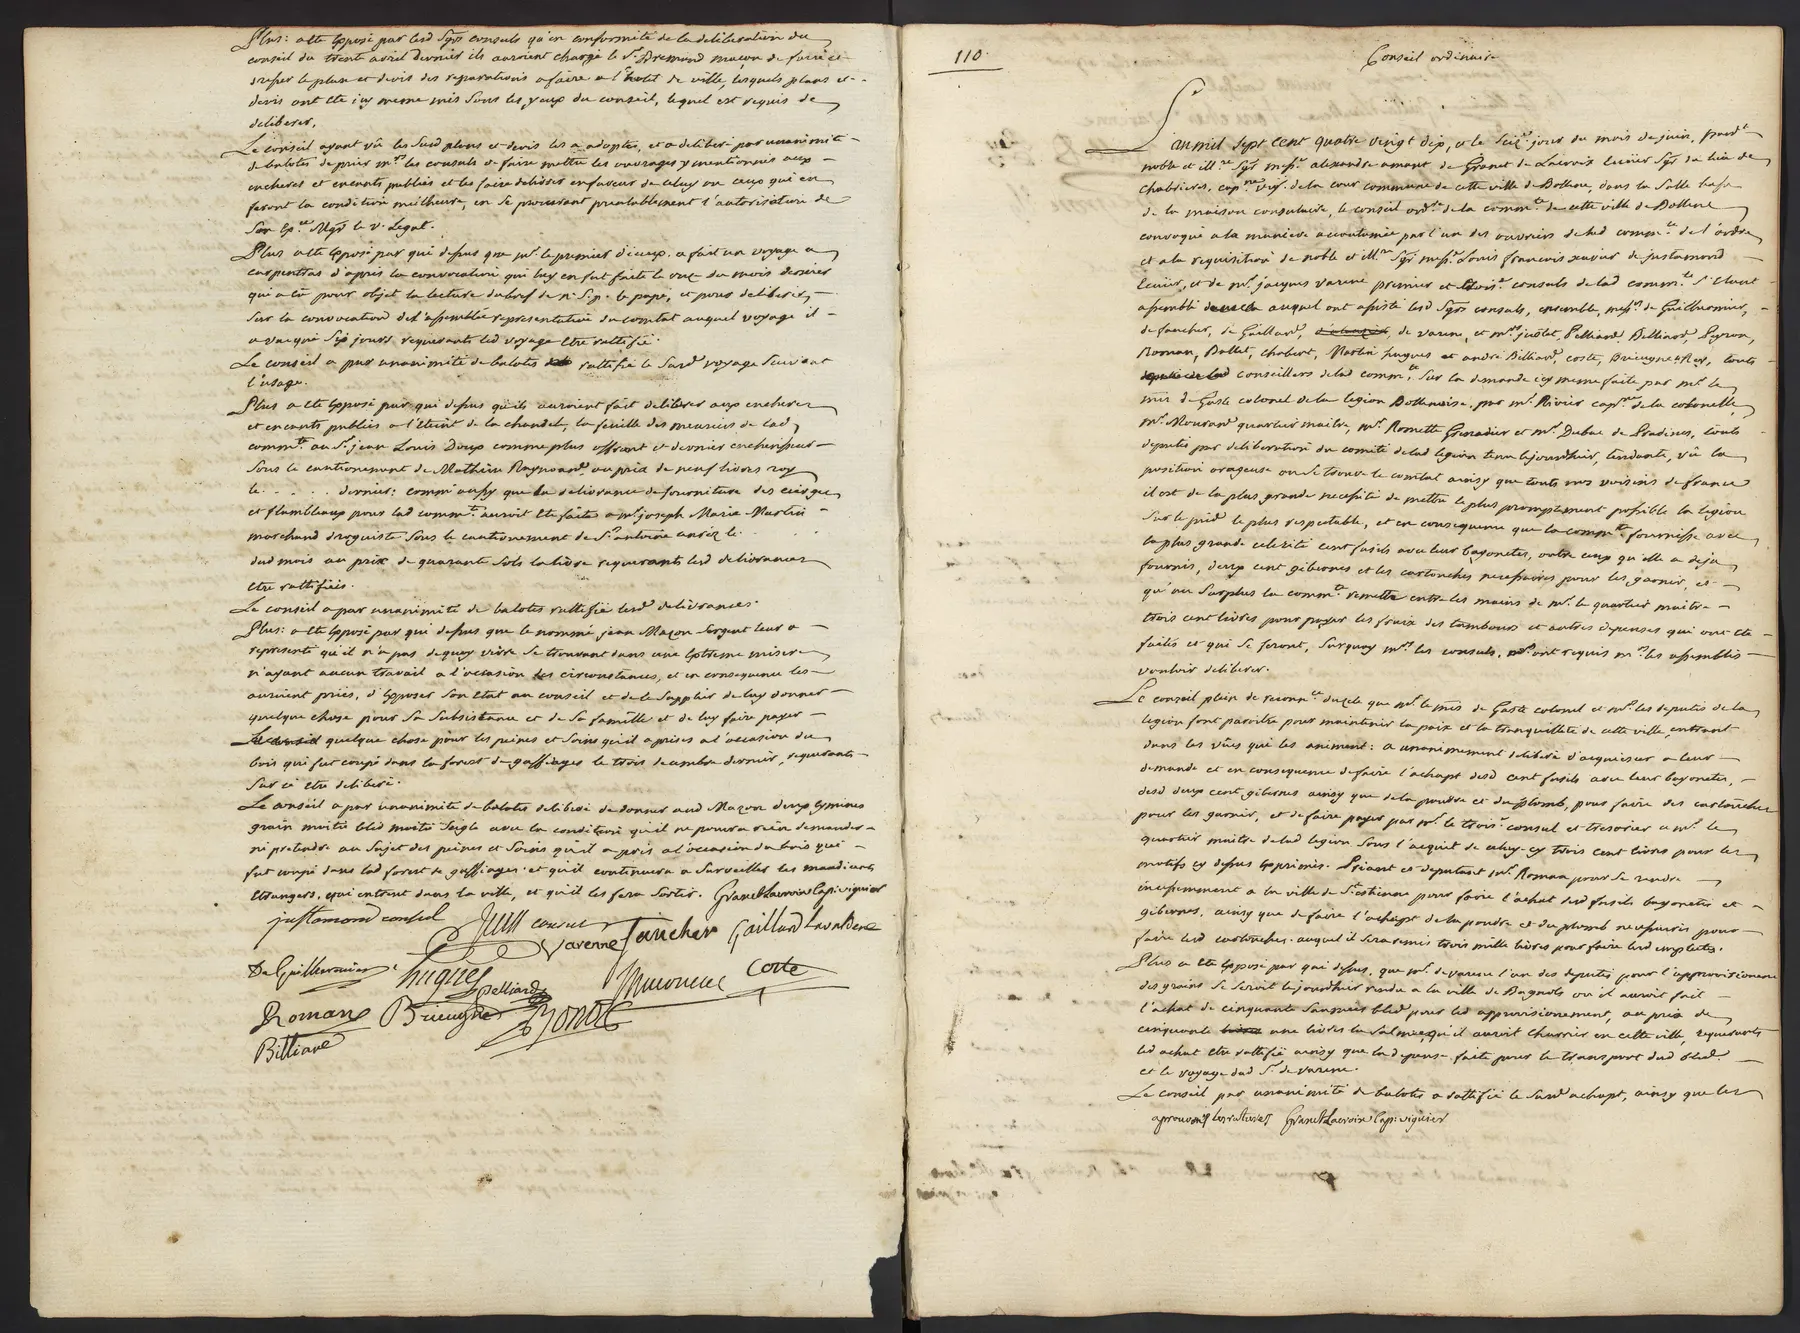 Plus: a été exposé par lesd Sgrs consuls qu'en conformité de la deliberation du
conseil du trente avril dernier ils auroient chargé le Sr. Bremond maçon de faire et
dresser le plan et devis des reparations a faire a l'hotel de ville, lesquels plans et
devis ont eté icy meme mis sous les yeux du conseil, lequel est requis de
deliberer.
Le conseil ayant vû les susd plans et devis les a adoptés, et a deliberé par unanimité
de balotes de prier mrs les consuls de faire mettre les ouvrages y mentionnés aux
encheres et encants publics et les faire delivrer en faveur de celuy ou ceux qui en
feront la condition meilleure, en se procurant prealablement l'autorisation de
Son Exce Mgr le V. Legat.
Plus a eté exposé par qui dessus que mr. le premier d'iceux, a fait un voyage a
carpentras d'après la convocation qui luy en fut faite le du mois dernier
qui a eû pour objet la lecture du bref de n. S. p. le pape, et pour deliberer
sur la convocation de l'assemblée representative du comtat auquel voyage il
a vacqué six jours requerants led voyage etre rattifié.
Le conseil a par unanimité de balotes rattifié le susd voyage suivant
l'usage.
Plus a eté exposé par qui dessus qu'ils auroient fait delibrer aux encheres
et encants publics a l'éteint de la chandel, la feuille des meuriers de lad
commté au Sr. jean Louis Doux comme plus offrant et dernier encherisseur
sous le cautionement de Mathieu Raymoard, au prix de neuf livres roy
le . . . . . dernier: comm'aussy que la delivrance de fourniture des cierges
et flambeaux pour lad commté auroit eté faite a mr. joseph Marie Martin
marchand droguiste sous le cautionement de Sr. antoine le . .
dud mois au prix de quarante sols la livre requerants lesd delivrances
etre rattifiées.
Le conseil a par unanimité de balotes rattifié lesd delivrances.
Plus: a eté exposé par qui dessus que le nommé jean Mazon sergent leur a
representé qu'il n'a pas dequoy vivre se trouvant dans une extreme misere
n'ayant aucun travail a l'occasion des circonstances, et en consequence les
auroient priés, d'exposer son etat au conseil et de le supplier de luy donner
quelque chose pour sa subsistance et de sa famille et de luy faire payer
Le conseil quelque chose pour les peines et soins qu'il a prises a l'occasion du
bois qui fut coupé dans la forest de gaffiages le trois decembre dernier, requerants
sur ce etre deliberé.
Le conseil a par unanimité de balotes deliberé de donner aud Mazon deux eymines
grain moitié bled moitié seigle avec la condition qu'il ne pourra rien demander
ni pretendre au sujet des peines et soins qu'il a pris a l'occasion du bois qui
fut coupé dans lad forest de gaffiages et qu'il continuera a surveiller les mandiants
etrangers, qui entrent dans la ville, et qu'il les fera sortir. Granet Lacroix Cap. viguier
justamond consul
Varenne Faucher Gaillard Lavaldene
De Guilhermier hugues Pelliard Coste
Roman Brieugne
Billiard
110.
Conseil ordinaire
L'an mil sept cent quatre vingt dix, et le seize jour du mois de juin, pardt
noble et illre Sgr messre alexandre amant de Granet de Lacroix ecuier Sgr du lieu de
chabrieres, capne vigr. de la cour commune de cette ville de Bollene, dans la salle basse
de la maison consulaire, le conseil ordre de la commté de cette ville de Bollene
convoqué a la maniere accoutumée par l'un des ouvriers de lad commté de l'ordre
et a la requisition de noble et illre Sgr messre Louis francois xavier de justamond
ecuier, et de mr. jacques varene premier et consuls de lad commté s'etant
assemblé auquel ont assisté lesd Sgrs consuls, ensemble, messrs de Guilhermier,
de faucher, de Gaillard, de varene, et mrs juölet, Pelliard, Billiard, Peyron,
Roman, Ballet, chabert, Martin hugues et andré Billiard, coste, Brieugne et Rey, touts
conseillers de lad commté sur la demande icy meme faite par mr. le
mis de Gaste colonel de la legion Bollenoise, par mr. Rivier capne de la colonelle,
mr. Mourard quartier maitre, mr. Romette Grenadier et mr. Dubac de Pradines, touts
deputés par deliberation du comité de lad legion tenu lejourdhuir, tendante, vû la
position orageuse ou se trouve le comtat ainsy que touts nos voisins de france
il est de la plus grande necessité de mettre le plus promptement possible la legion
sur le pied le plus respectable, et en consequence que la commté fournisse avec
la plus grande celerité cent fusils avec leur bayonetes, outre ceux qu'elle a deja
fournis, deux cent gibernes et les cartouches necessaires pour les garnir, et
qu'au surplus la commté remette entre les mains de mr. le quartier maitre
trois cent livres pour payer les fraix des tambours et autres depenses qui ont eté
faites et qui se feront, surquoy mrs les consuls, ont requis mrs les assemblés
vouloir deliberer.
Le conseil plein de reconnce du zele que mr. le mis de Gaste colonel et mrs les deputés de la
legion font paroitre pour maintenir la paix et la tranquillité de cette ville, entrant
dans les vües qui les animent: a unanimement deliberé d'acquiescer a leur
demande et en consequence de faire l'achapt desd cent fusils avec leur bayonetes,
desd deux cent gibernes ainsy que de la poudre et du plomb, pour faire des cartouches
pour les garnir, et de faire payer par mr. le trois. consul et tresorier a mr. le
quartier maitre de lad legion sous l'acquit de celuy-cy trois cent livres pour les
motifs cy dessus exprimés. Priant et deputant mr. Roman pour se rendre
incessamment a la ville de St. etienne pour faire l'achat desd fusils bayonetes et
gibernes, ainsy que de faire l'achapt de la poudre et du plomb necessaires pour
faire lesd cartouches. auquel il sera remis trois mille livres pour faire lesd emplettes.
Plus a eté exposé par qui dessus, que mr. de varene l'un des deputés pour l'approvisionement
des grains se seroit lejourdhuir rendu a la ville de Bagnols ou il auroit fait
l'achat de cinquante saumées bled pour led approvisionement, au prix de
cinquante une livres la salmée, qu'il auroit charrier en cette ville, requerants
led achat etre rattifié ainsy que la depense faite pour le transport dud bled
et le voyage dud Sr. de varene.
Le conseil par unanimité de balotes a rattifié le susd achapt, ainsy que les
aprouvons les ratures Granet Lacroix Cap. viguier